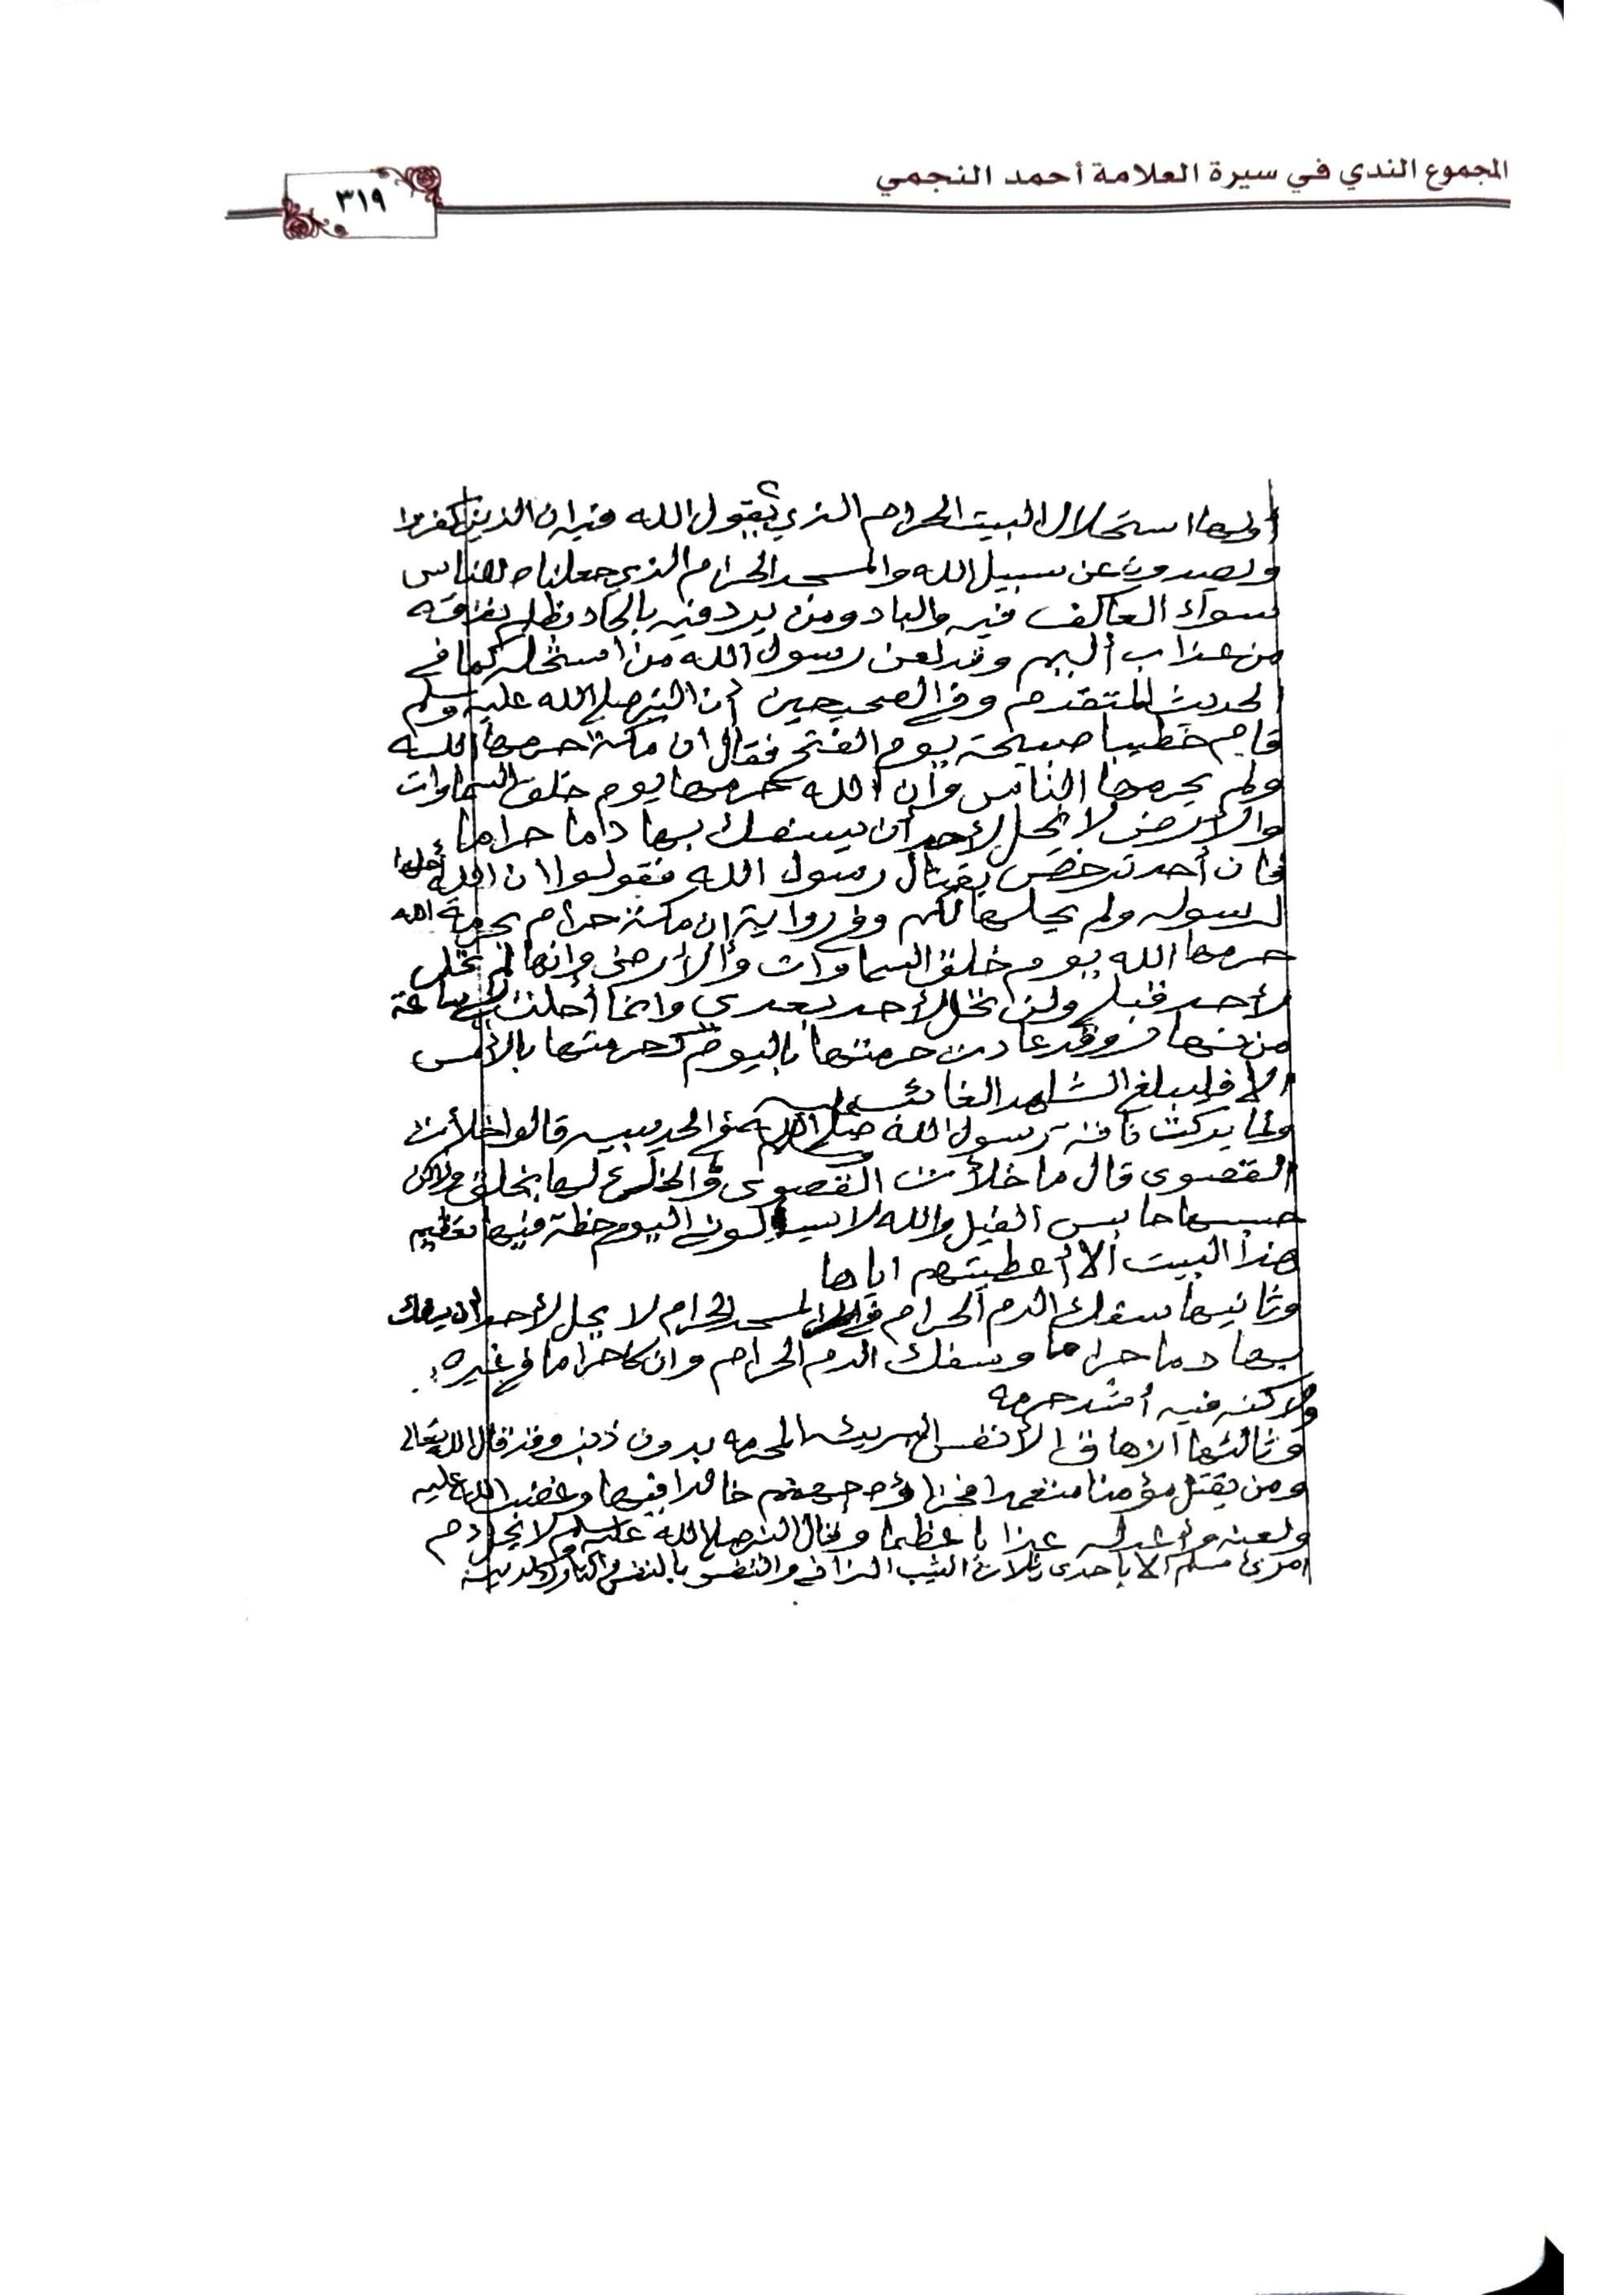 المجموع الندي في سيرة العلامة أحمد النجمي
٣١٩
أولها استحلال البيت الحرام الذي يقول الله فيه ان الذين كفروا
ويصدون عن سبيل الله والمسجد الحرام الذي جعلناه للناس
سواء العاكف فيه والباد ومن يرد فيه بالحاد بظلم نذقه
من عذاب أليم وقد لعن رسول الله من استحله كما في
الحديث المتقدم وفي الصحيحين أن النبي صلى الله عليه وسلم
قام خطيبا صبيحة يوم الفتح فقال ان مكة حرمها الله
ولم يحرمها الناس وأن الله حرمها يوم خلق السماوات
والأرض لا يحل لأحد أن يسفك بها داما حراما
فان أحد ترخص بقتال رسول الله فقولوا ان الله أحلها
لرسوله ولم يحلها لكم وفي رواية ان مكة حرام بحرمة الله
حرمها الله يوم خلق السماوات والأرض وإنها لم تحل
لأحد قبلي ولن تحل لأحد بعدي وانما أحلت لي ساعة
من نهار وقد عادت حرمتها باليوم كحرمتها بالأمس
الا فليبلغ الشاهد الغائب
ولما بركت ناقة رسول الله صلى الله عليه وسلم في الحديبيه قالوا خلأت
القصوى قال ما خلأت القصوى وما الخلأ لها بخلق ولاكن
حبسها حابس الفيل والله لا يسألوني اليوم خطة فيها تعظيم
هذا البيت ألا أعطيتهم اياها
وثانيها سفك الدم الحرام في المسجد الحرام لا يحل لأحد ان يسفك
بها دما حراما وسفك الدم الحرام وان كا حراما في غيره
ولاكنه فيه أشد حرمه
وثالثها ازهاق الأنفس البريئه المحرمه بدون ذنب وقد قال الله تعالى
ومن يقتل مؤمنا متعمدا فجزاؤه جهنم خالدا فيها وغضب الله عليه
ولعنه وأعد له عذابا عظيما وقال النبي صلى الله عليه وسلم لا يحل دم
امرئ مسلم الا باحدى ثلاث الثيب الزاني والنفس بالنفس والتارك لدينه